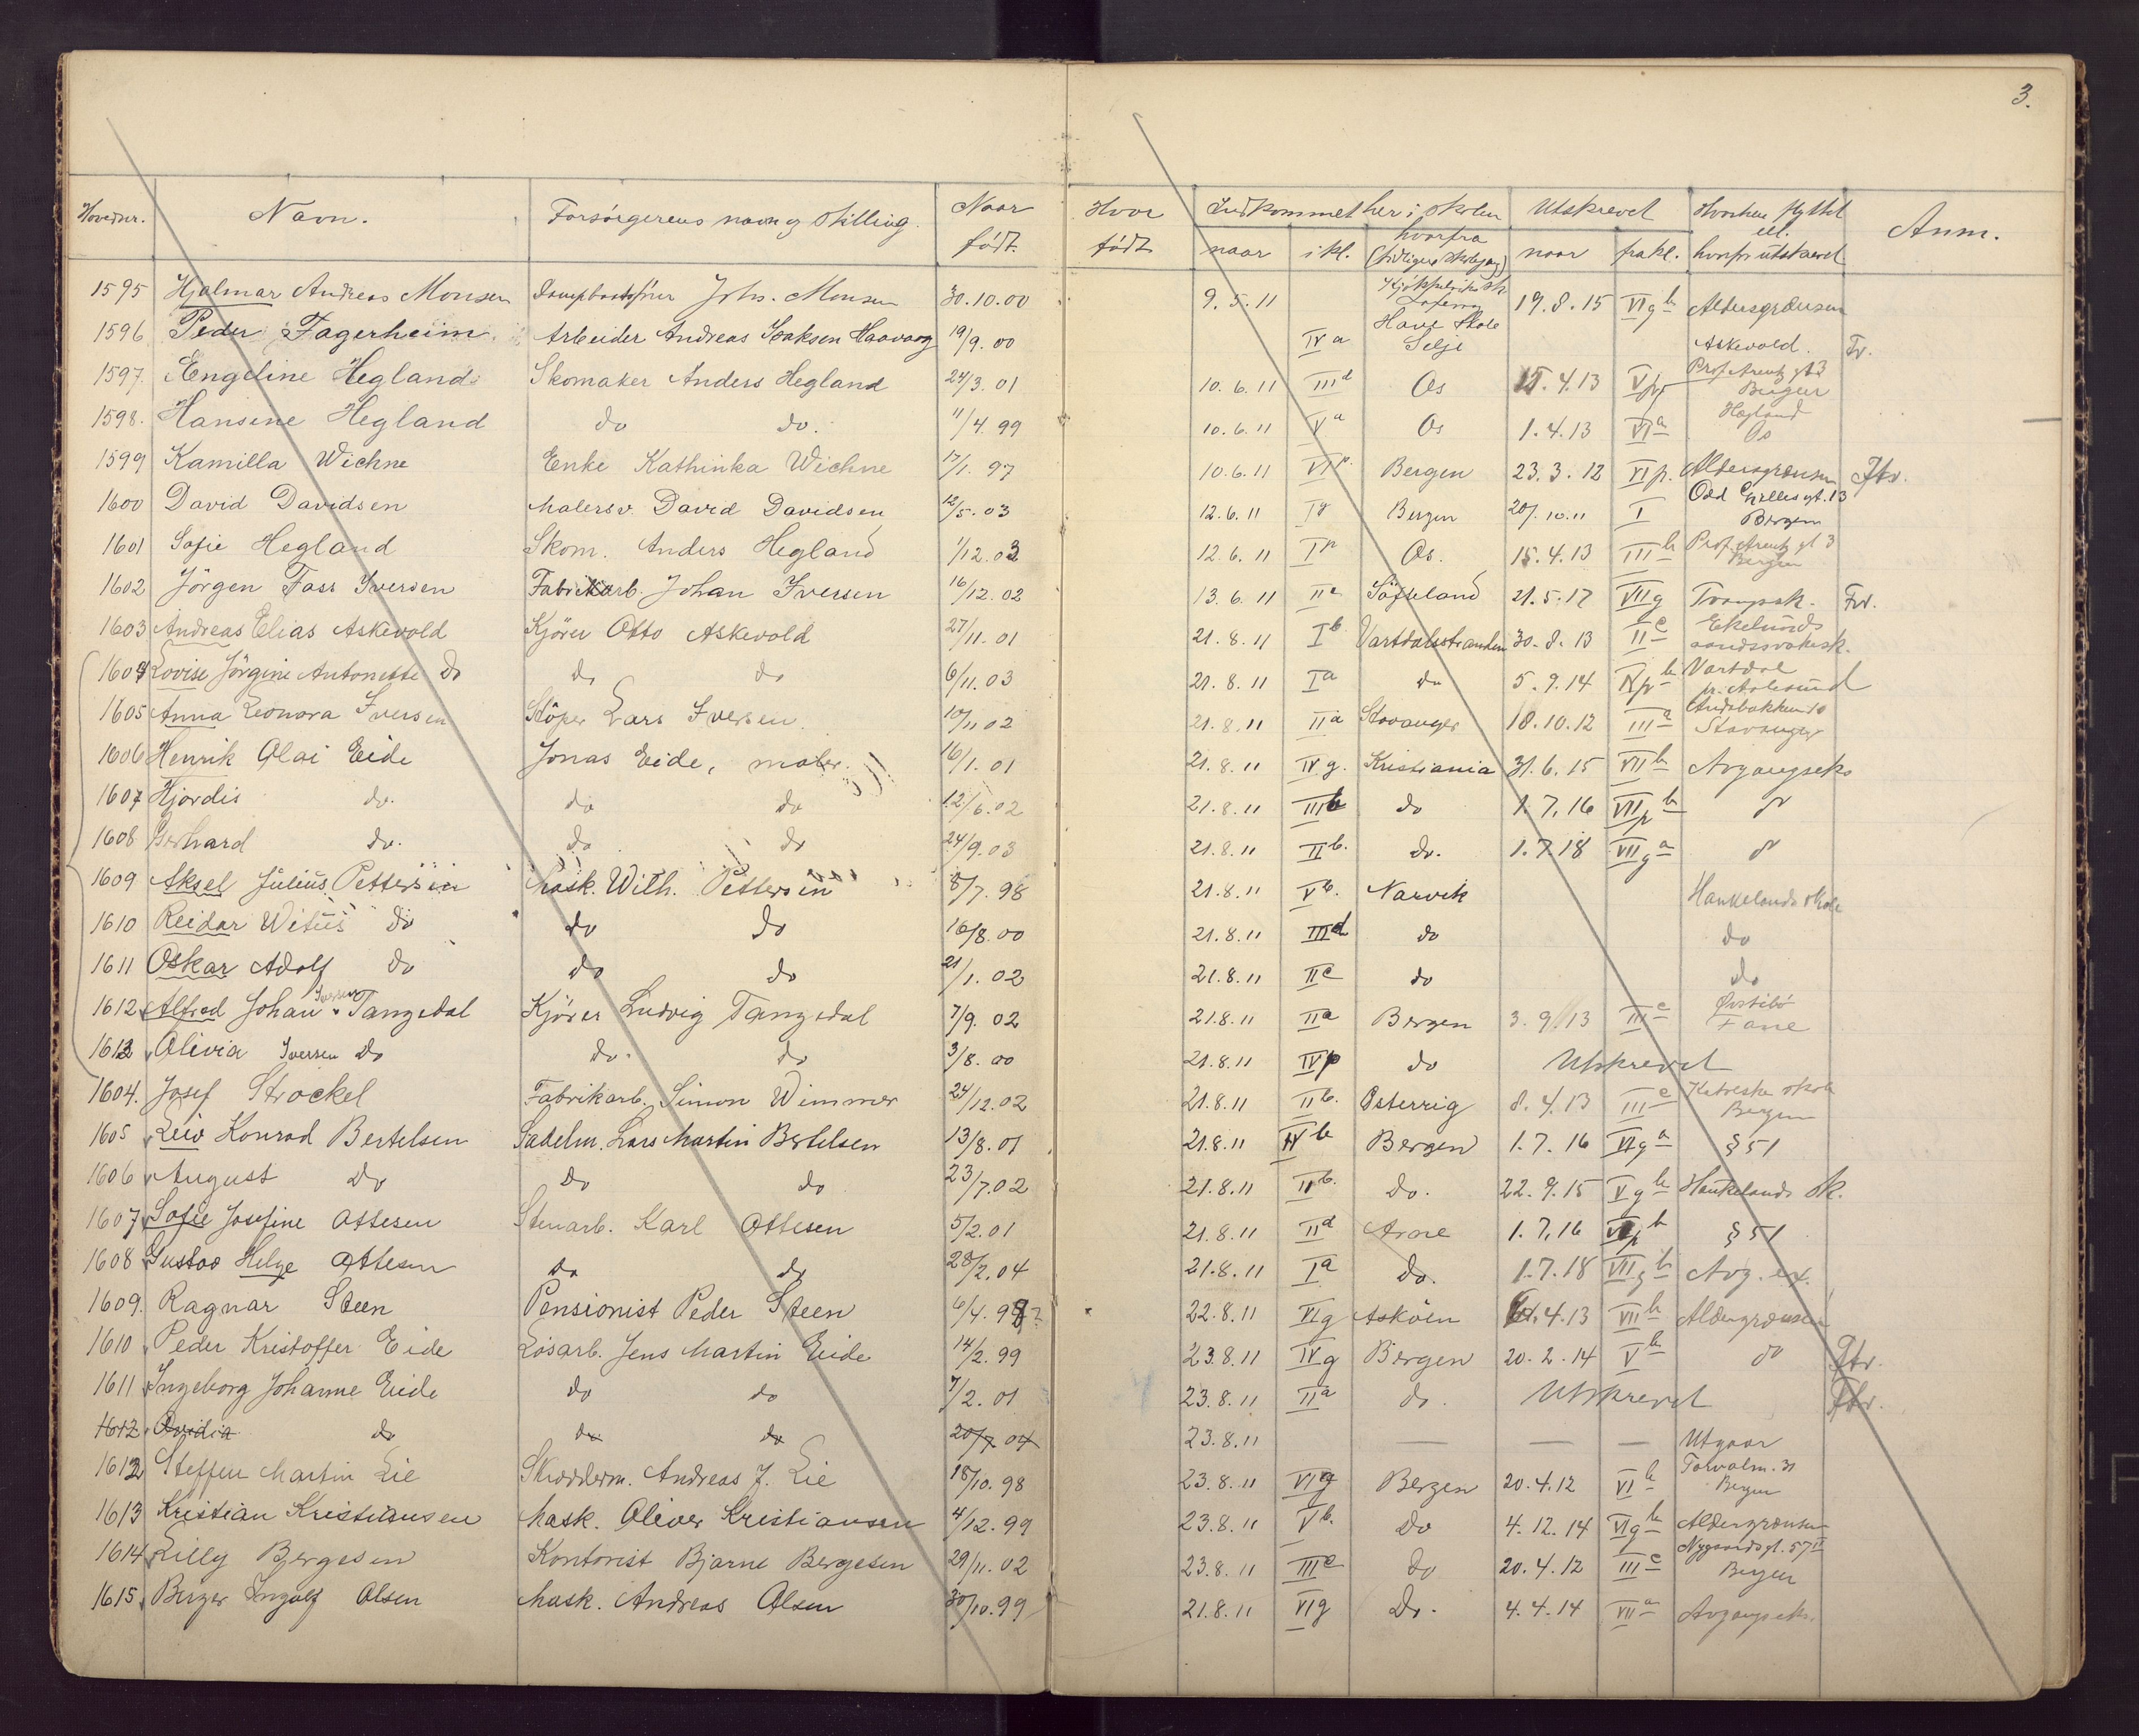 3.
Hovednr. Navn. Forsörgerens navn og stilling. Naar födt. Hvor födt Indkommet her i skolen Utskrevet Hvorhen flyttet ell. hvorfor utskrevet Anm.
naar i kl. hvorfra naar fra kl.
1595 Hjalmar Andreas Monsen Johs. Monsen 30.10.00 9.5.11 19.8.15 VIg b Aldersgrænsen
1596 Peder Fagerheim Arbeider Andreas Isaksen Haavaag 19/9.00 IV a Hove skole Selje Askevold. Fr.
1597. Engeline Hegland Skomaker Anders Hegland 24/3.01 10.6.11 III d Os 15.4.13 Vp Prof. Arentz gt 3 Bergen
1598. Hansine Hegland do do. 11/4.99 10.6.11 V a Os 1.4.13 VI a Hegland Os
1599 Kamilla Wichne Enke Kathinka Wichne 17/1.97 10.6.11 VI p. Bergen 23.3.12 VI p. Aldersgrænsen Ftr.
1600 David Davidsen Malersv. David Davidsen 12/5.03 12.6.11 I g Bergen 20/.10.11 I Odd Gjellesgt. 13 Bergen
1601 Sofie Hegland Skom. Anders Hegland 1/12.03 12.6.11 I p Os. 15.4.13 III b Prof. Arentz gt 3 Bergen
1602 Jörgen Fass Iversen Fabrikarb. Johan Iversen 16/12.02 13.6.11 II c Söfteland 21.5.17 VIIg Tvangssk. Fr.
1603 Andreas Elias Askevold Kjörer Otto Askevold 27/11.01 21.8.11 I b Vartdalsstranden 30.8.13 II c Ekelunds aandssvakesk.
1604 Lovise Jörgine Antonette do do do 6/11.03 21.8.11 I a do 5.9.14 IVp b Vartdal p. Aalesund
1605 Anna Leonora Iversen Stöper Lars Iversen 10/11 02 21.8.11 II a Stavanger 18.10.12 III a Stavanger
1606 Henrik Olai Eide Jonas Eide, maler. 16/1.01 21.8.11 IV g. Kristiania 31.6.15 VII b Avgangseks
1607 Hjördis do. do do 12/6.02 21.8.11 III b do 1.7.16 VIIp b do
1608 Gerhard do. do do 24/9.03 21.8.11 II b. do. 1.7.18 VIIg a do
1609 Aksel Julius Pettersen Mask. Wilh. Pettersen 8/7.98 21.8.11 V b. Narvik Haukelands skole
1610 Reidar Witus do do do 16/8.00 21.8.11 III d do do
1611 Oskar Adolf do do do 21/1.02 21.8.11 II c do do
1612 Alfred Johan Iversen Tangedal Kjörer Ludvig Tangedal 7/9.02 21.8.11 II a Bergen 3.9.13 III c Fane
1613 Olivia Iversen do do. do 3/8.00 21.8.11 IVp do Utskrevet
1604. Josef Strockel Fabrikarb. Simon Wimmer 24/12.02 21.8.11 II b. Österrig 8.4.13 III c Katolske skole Bergen
1605 Leiv Konrad Bertelsen Sadelm. Lars Martin Bertelsen 13/8.01 21.8.11 IV b Bergen 1.7.16 VIg a § 51
1606 August do do do 23/7.02 21.8.11 II b. do. 22.9.15 Vg b Haukelands sk.
1607 Sofie Josefine Ottesen Stenarb. Karl Ottesen 5/2.01 21.8.11 II d Arne 1.7.16 VIp b § 51
1608 Gustav Helge Ottesen do do 28/2.04 21.8.11 I a do. 1.7.18 VIIg b Avg. ex.
1609. Ragnar Steen Pensionist Peder Steen 6/4.98? 22.8.11 VIg Asköen 4.13 VII b Aldersgrænsen
1610 Peder Kristoffer Eide Lösarb. Jens Martin Eide 14/2.99 23.8.11 IVg Bergen 20.2.14 V b do Ftr.
1611 Ingeborg Johanne Eide do do 7/2.01 23.8.11 II a do. Utskrevet Ftr.
1612 Ovidia do do do 20/7.04 23.8.11 — — — Utgaar
1612 Steffen Martin Lie Skrædderm. Andreas J. Lie 18/10.98 23.8.11 VIg Bergen 20.4.12 VI b Torvalm. 31 Bergen
1613 Kristian Kristiansen Mask. Oliver Kristiansen 4/12.99 23.8.11 V b. do 4.12.14 VIg b Aldersgrænsen
1614 Lilly Bergesen Kontorist Bjarne Bergesen 29/11.02 23.8.11 III c do 20.4.12 III c Nygaardsgt. 57 II Bergen
1615 Birger Ingolf Olsen Mask. Andreas Olsen 30/10.99 21.8.11 VIg do. 4.4.14 VII a Avgangseks.